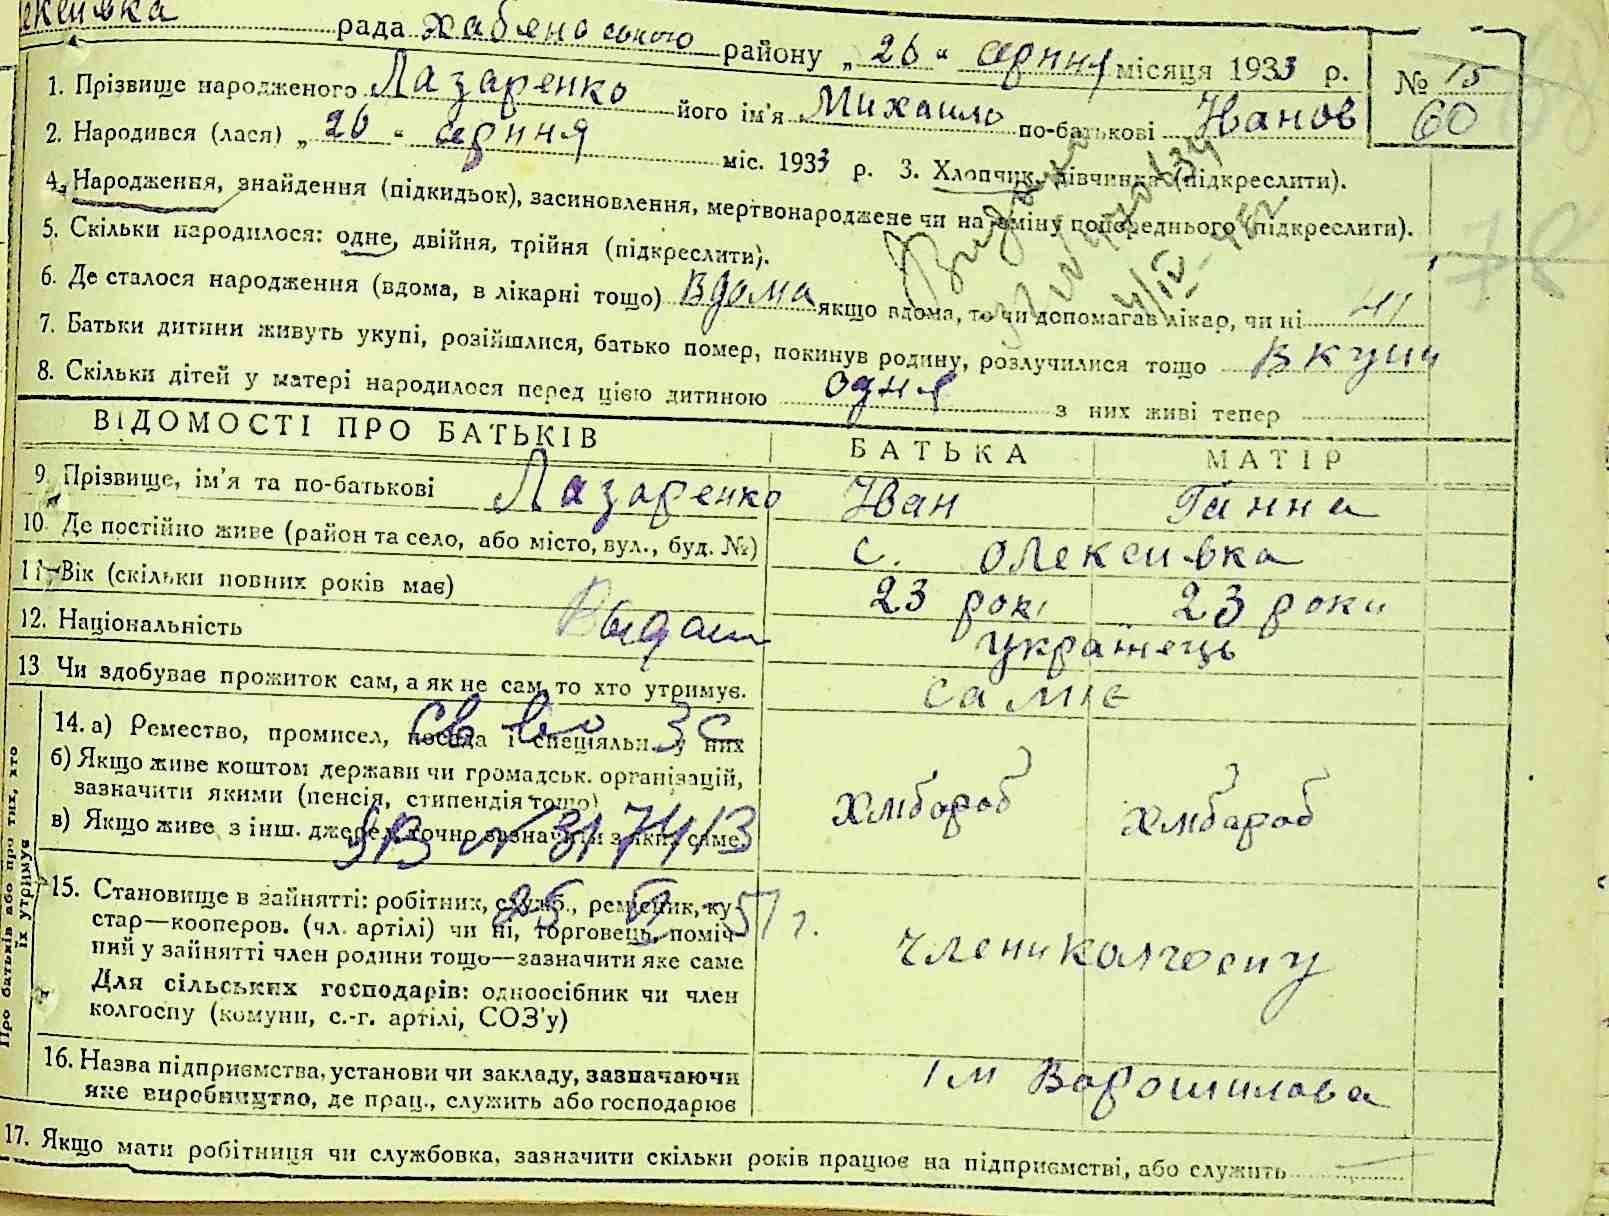 рада Хабенського району „ 26 “ серпня місяця 1933 р.
№ 15
60
1. Прізвище народженого Лазаренко його ім'я Михаило по-батькові Иванов
2. Народився (лася) „ 26 “ серпня міс. 1933 р. 3. Хлопчик, дівчинка (підкреслити).
4. Народження, знайдення (підкидьок), засиновлення, мертвонароджене чи на зміну попереднього (підкреслити).
5. Скільки народилося: одне, двійня, трійня (підкреслити).
6. Де сталося народження (вдома, в лікарні тощо) вдома якщо вдома, то чи допомагав лікар, чи ні ні
7. Батьки дитини живуть укупі, розійшлися, батько помер, покинув родину, розлучилися тощо вкупи
8. Скільки дітей у матері народилося перед цією дитиною одня з них живі тепер
ВІДОМОСТІ ПРО БАТЬКІВ БАТЬКА МАТІР
9. Прізвище, ім'я та по-батькові Лазаренко Иван Ганна
10. Де постійно живе (район та село, або місто, вул., буд. №) с. Олексивка
11. Вік (скільки повних років має) 23 рокі 23 роки
12. Національність Выдан українець
13. Чи здобуває прожиток сам, а як не сам, то хто утримує. самиє
14. а) Ремество, промисел, посада і спеціяльн. у них
Св во ЗС
б) Якщо живе коштом держави чи громадськ. організацій,
зазначити якими (пенсія, стипендія тощо)
хлібороб хлібароб
в) Якщо живе з інш. джерел, точно зазначити з яких саме
ЯВ № 317413
15. Становище в зайнятті: робітник, служб., ремісник, ку-
51 г.
стар—кооперов. (чл. артілі) чи ні, торговець, поміч-
ний у зайнятті член родини тощо—зазначити яке саме
члени колгоспу
Для сільських господарів: одноосібник чи член
колгоспу (комуни, с.-г. артілі, СОЗ'у)
16. Назва підприємства, установи чи закладу, зазначаючи
яке виробництво, де прац., служить або господарює
ім Ворошилова
17. Якщо мати робітниця чи службовка, зазначити скільки років працює на підприємстві, або служить
Про батьків або про тих, хто
їх утримує